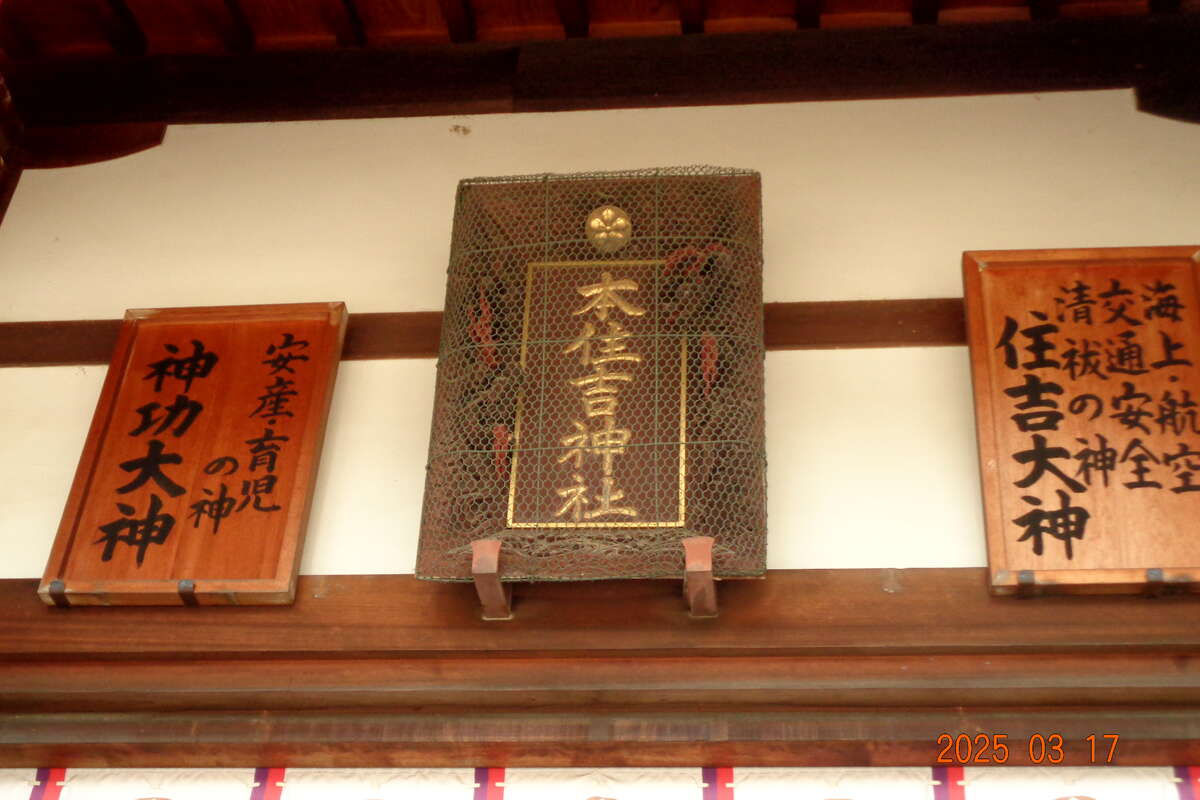 海上・航空
交通安全
清祓の神
住吉大神
本住吉神社
安産・育児
の神
神功大神
2025 03 17